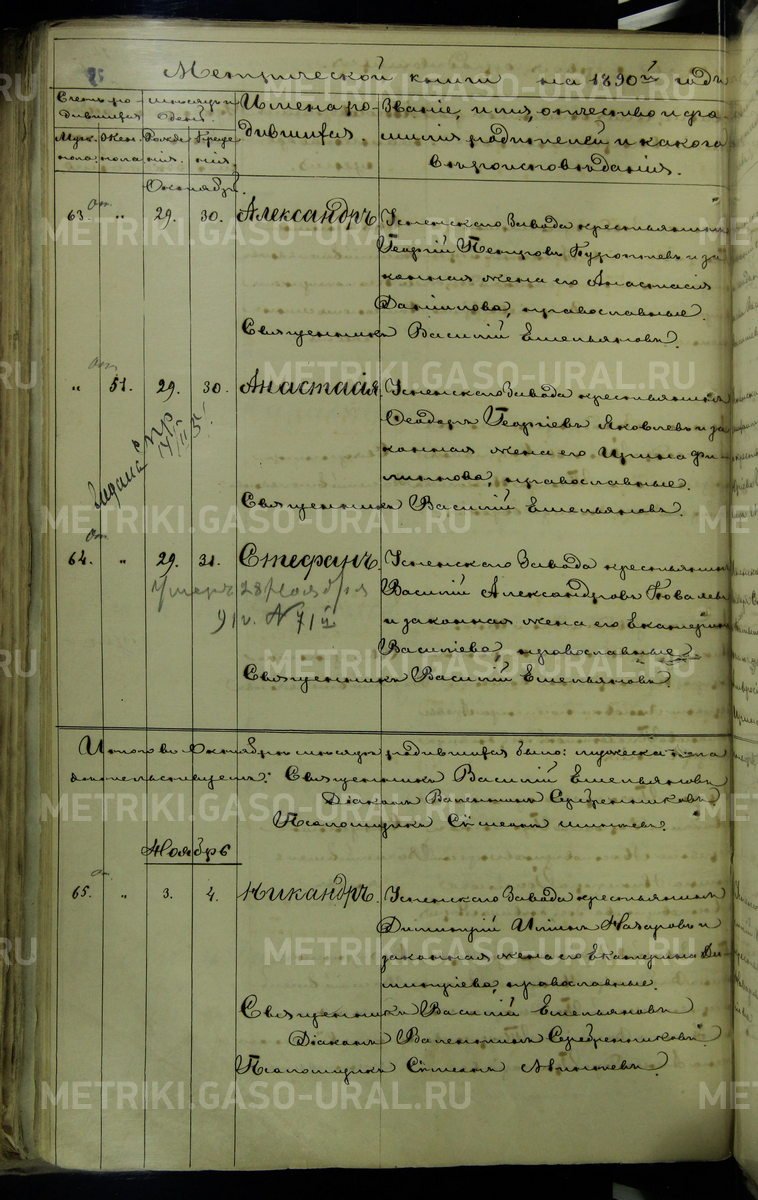 Метрической книги на 1890й годъ
Счетъ родившихся
Мѣсяцъ и день
Имена родившихся.
Званіе, имя, отчество и фамилія родителей и какого вѣроисповѣданія.
Муж. пола.
Жен. пола
Рожденія.
Крещенія.
Октябрь.
63. " 29. 30. Александръ.
Успенскаго Завода крестьянинъ
Георгій Петровъ и за
конная жена его Анастасія
Даніилова, православные.
Священникъ Василій Емельяновъ.
" 51. 29. 30. Анастасія.
Успенскаго Завода крестьянинъ
Ѳеодоръ Георгіевъ Яковлевъ и за
конная жена его Ирина Фи
липпова, православные.
Священникъ Василій Емельяновъ.
64. " 29. 31. Стефанъ.
Умеръ 28 Ноября
Успенскаго Завода крестьянинъ
Василій Александровъ Ковалевъ
и законная жена его Екатерина
Василіева, православные.
Священникъ Василій Емельяновъ.
Итого въ Октябрѣ мѣсяцѣ родившихся было: мужеска пола
Священникъ Василій Емельяновъ
Діаконъ Валентинъ Серебренниковъ.
Псаломщикъ
Ноябрь
65. " 3. 4. Никандръ.
Успенскаго Завода крестьянинъ
Димитрій Илiинъ Назаровъ и
законная жена его Екатерина Ди
митріева, православные.
Священникъ Василій Емельяновъ
Діаконъ Валентинъ Серебренниковъ.
Псаломщикъ
METRIKI.GASO-URAL.RU